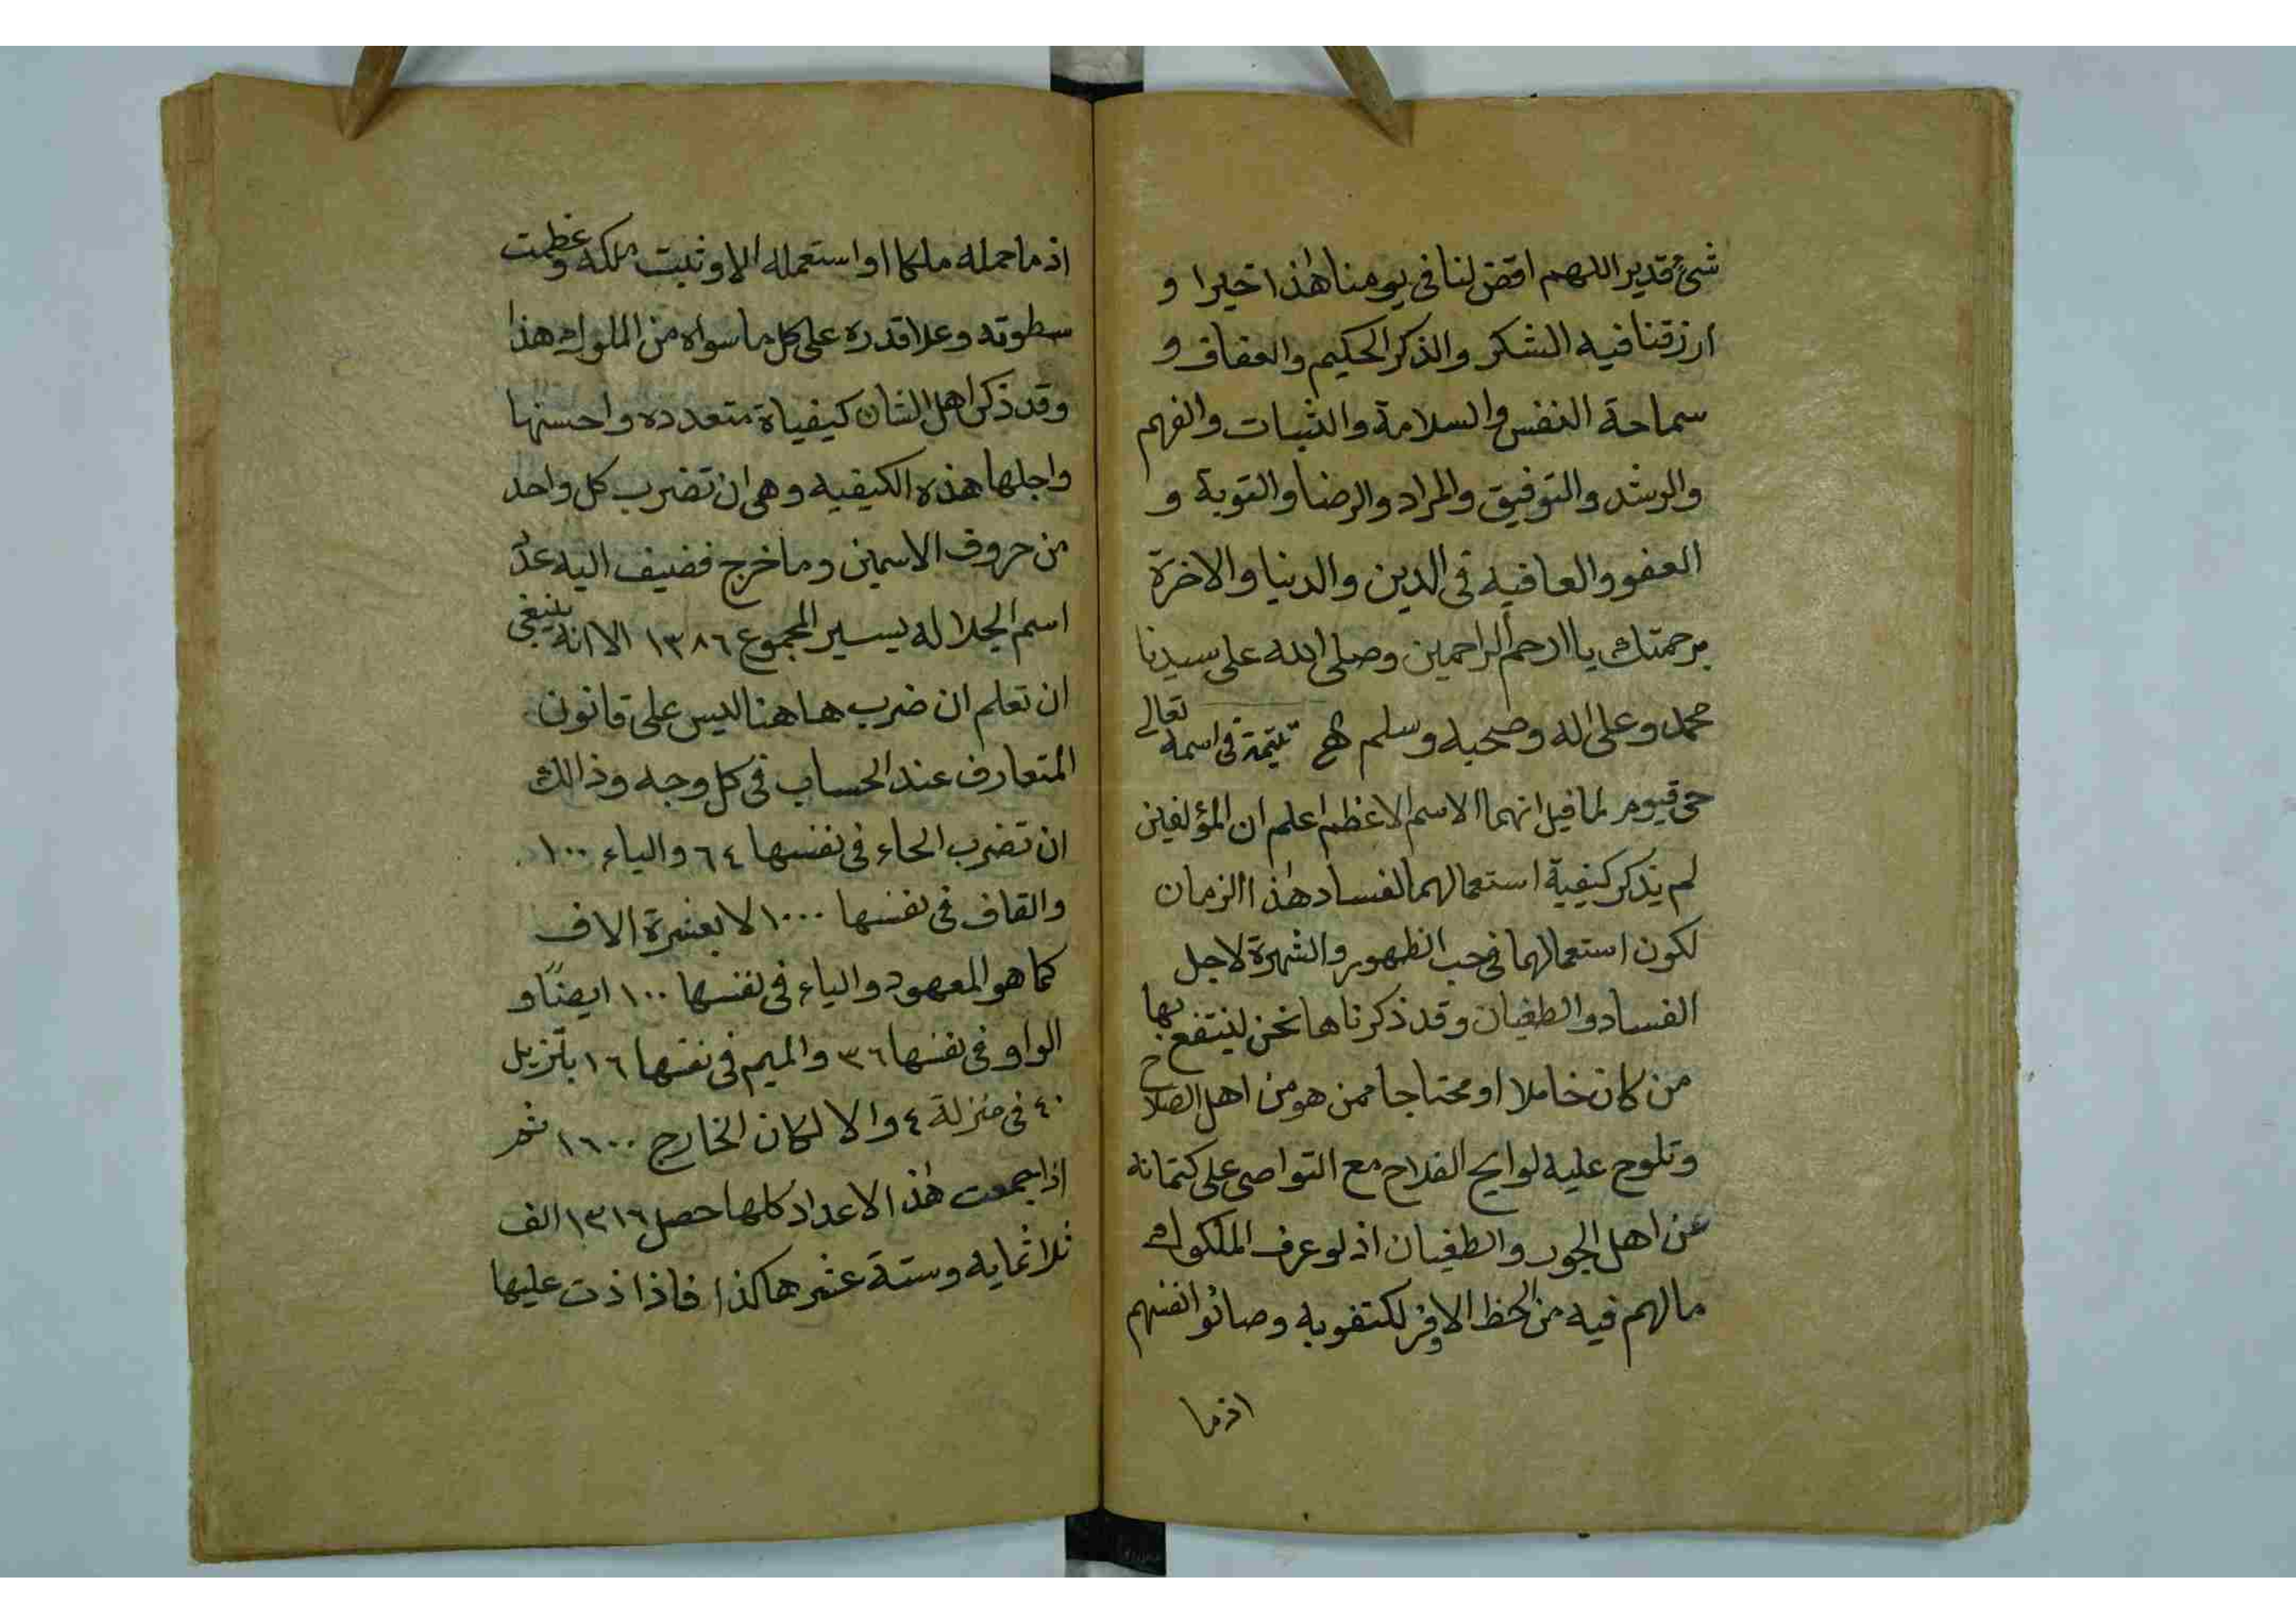 شئ قدير اللهم اقض لنا فى يومنا هٰذا خيرا و
ارزقنا فيه الشكر والذكر الحكيم والعفاف و
سماحة النفس والسلامة والثبات والفهم
والرشد والتوفيق والمراد والرضا والتوبة و
العفو والعافيه فى الدين والدنيا والاخرة
برحمتك ياارحم الراحمين وصلى الله على سيدنا
محمد وعلى اله وصحبه وسلم تتيمة فى اسمه تعالى
حى قيوم لما قيل انهما الاسم الاعظم اعلم ان المؤلفين
لم يذكر كيفية استعمالهما لفساد هٰذا الزمان
لكون استعمالهما فى حب الظهور والشهرة لاجل
الفساد والطغيان وقد ذكرناها نحن لينتفع بها
من كان خاملا او محتاجا ممن هو من اهل الصلاح
وتلوح عليه لوايح الفلاح مع التواصى على كتمانه
عن اهل الجور والطغيان اذ لو عرف الملكوك
مالهم فيه من الحظ الاوفر لكتفو به وصانوا انفسهم
اذ ما
اذ ما حمله ملكا او استعمله الا وثبت ملكه وعظمت
سطوته وعلا قدره على كل ما سواه من الملوك هذا
وقد ذكر اهل الشان كيفياة متعدده واحسنها
واجلها هذه الكيفيه وهى ان تضرب كل واحد
من حروف الاسمين وما خرج فضيف اليه عدد
اسم الجلاله يسير المجموع ١٣٨٦ الا انه ينبغى
ان تعلم ان ضرب هاهنا ليس على قانون
المتعارف عند الحساب فى كل وجه وذالك
ان تضرب الحاء فى نفسها ٦٤ والياء ١٠٠
والقاف فى نفسها ١٠٠٠ لا بعشرة الاف
كما هو المعهود والياء فى نفسها ١٠٠ ايضًا و
الواو فى نفسها ٣٦ والميم فى نفسها ١٦ بتنزيل
٤٠ فى منزلة ٤ والا لكان الخارج ١٦٠٠ ثم
اذا جمعت هٰذ الاعداد كلها حصل ١٣١٦ الف
ثلاثمايه وستة عشر هاكذا فاذا ذت عليها